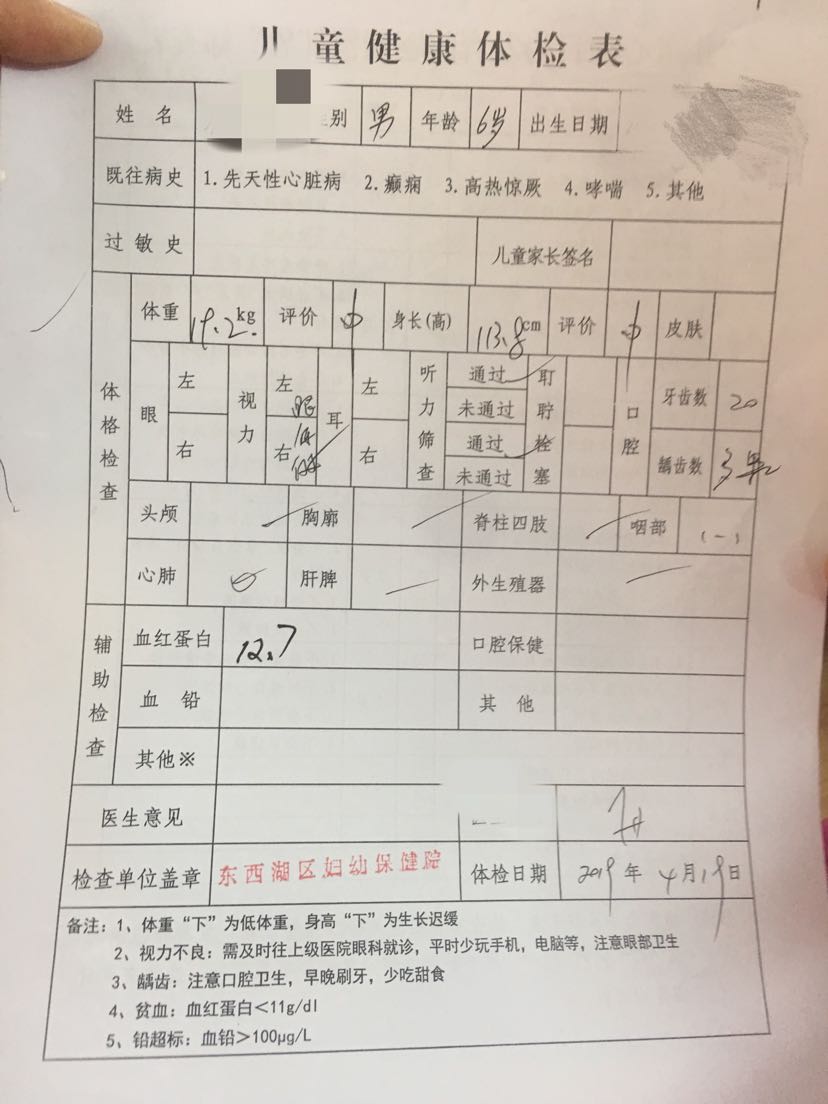 儿童健康体检表
姓名 别 男 年龄 6岁 出生日期
既往病史 1.先天性心脏病 2.癫痫 3.高热惊厥 4.哮喘 5.其他
过敏史 儿童家长签名
体格检查
体重 19.2kg 评价 中 身长(高) 113.8cm 评价 中 皮肤
眼 左 右 视力 左 右 耳 左 右 听力筛查 通过 未通过 通过 未通过 耵聍栓塞 口腔 牙齿数 20 龋齿数
头颅 胸廓 脊柱四肢 咽部 (-)
心肺 肝脾 外生殖器
辅助检查
血红蛋白 12.7 口腔保健
血铅 其他
其他※
医生意见
检查单位盖章 东西湖区妇幼保健院 体检日期 2019年4月19日
备注:1、体重“下”为低体重,身高“下”为生长迟缓
2、视力不良:需及时往上级医院眼科就诊,平时少玩手机,电脑等,注意眼部卫生
3、龋齿:注意口腔卫生,早晚刷牙,少吃甜食
4、贫血:血红蛋白<11g/dl
5、铅超标:血铅>100μg/L